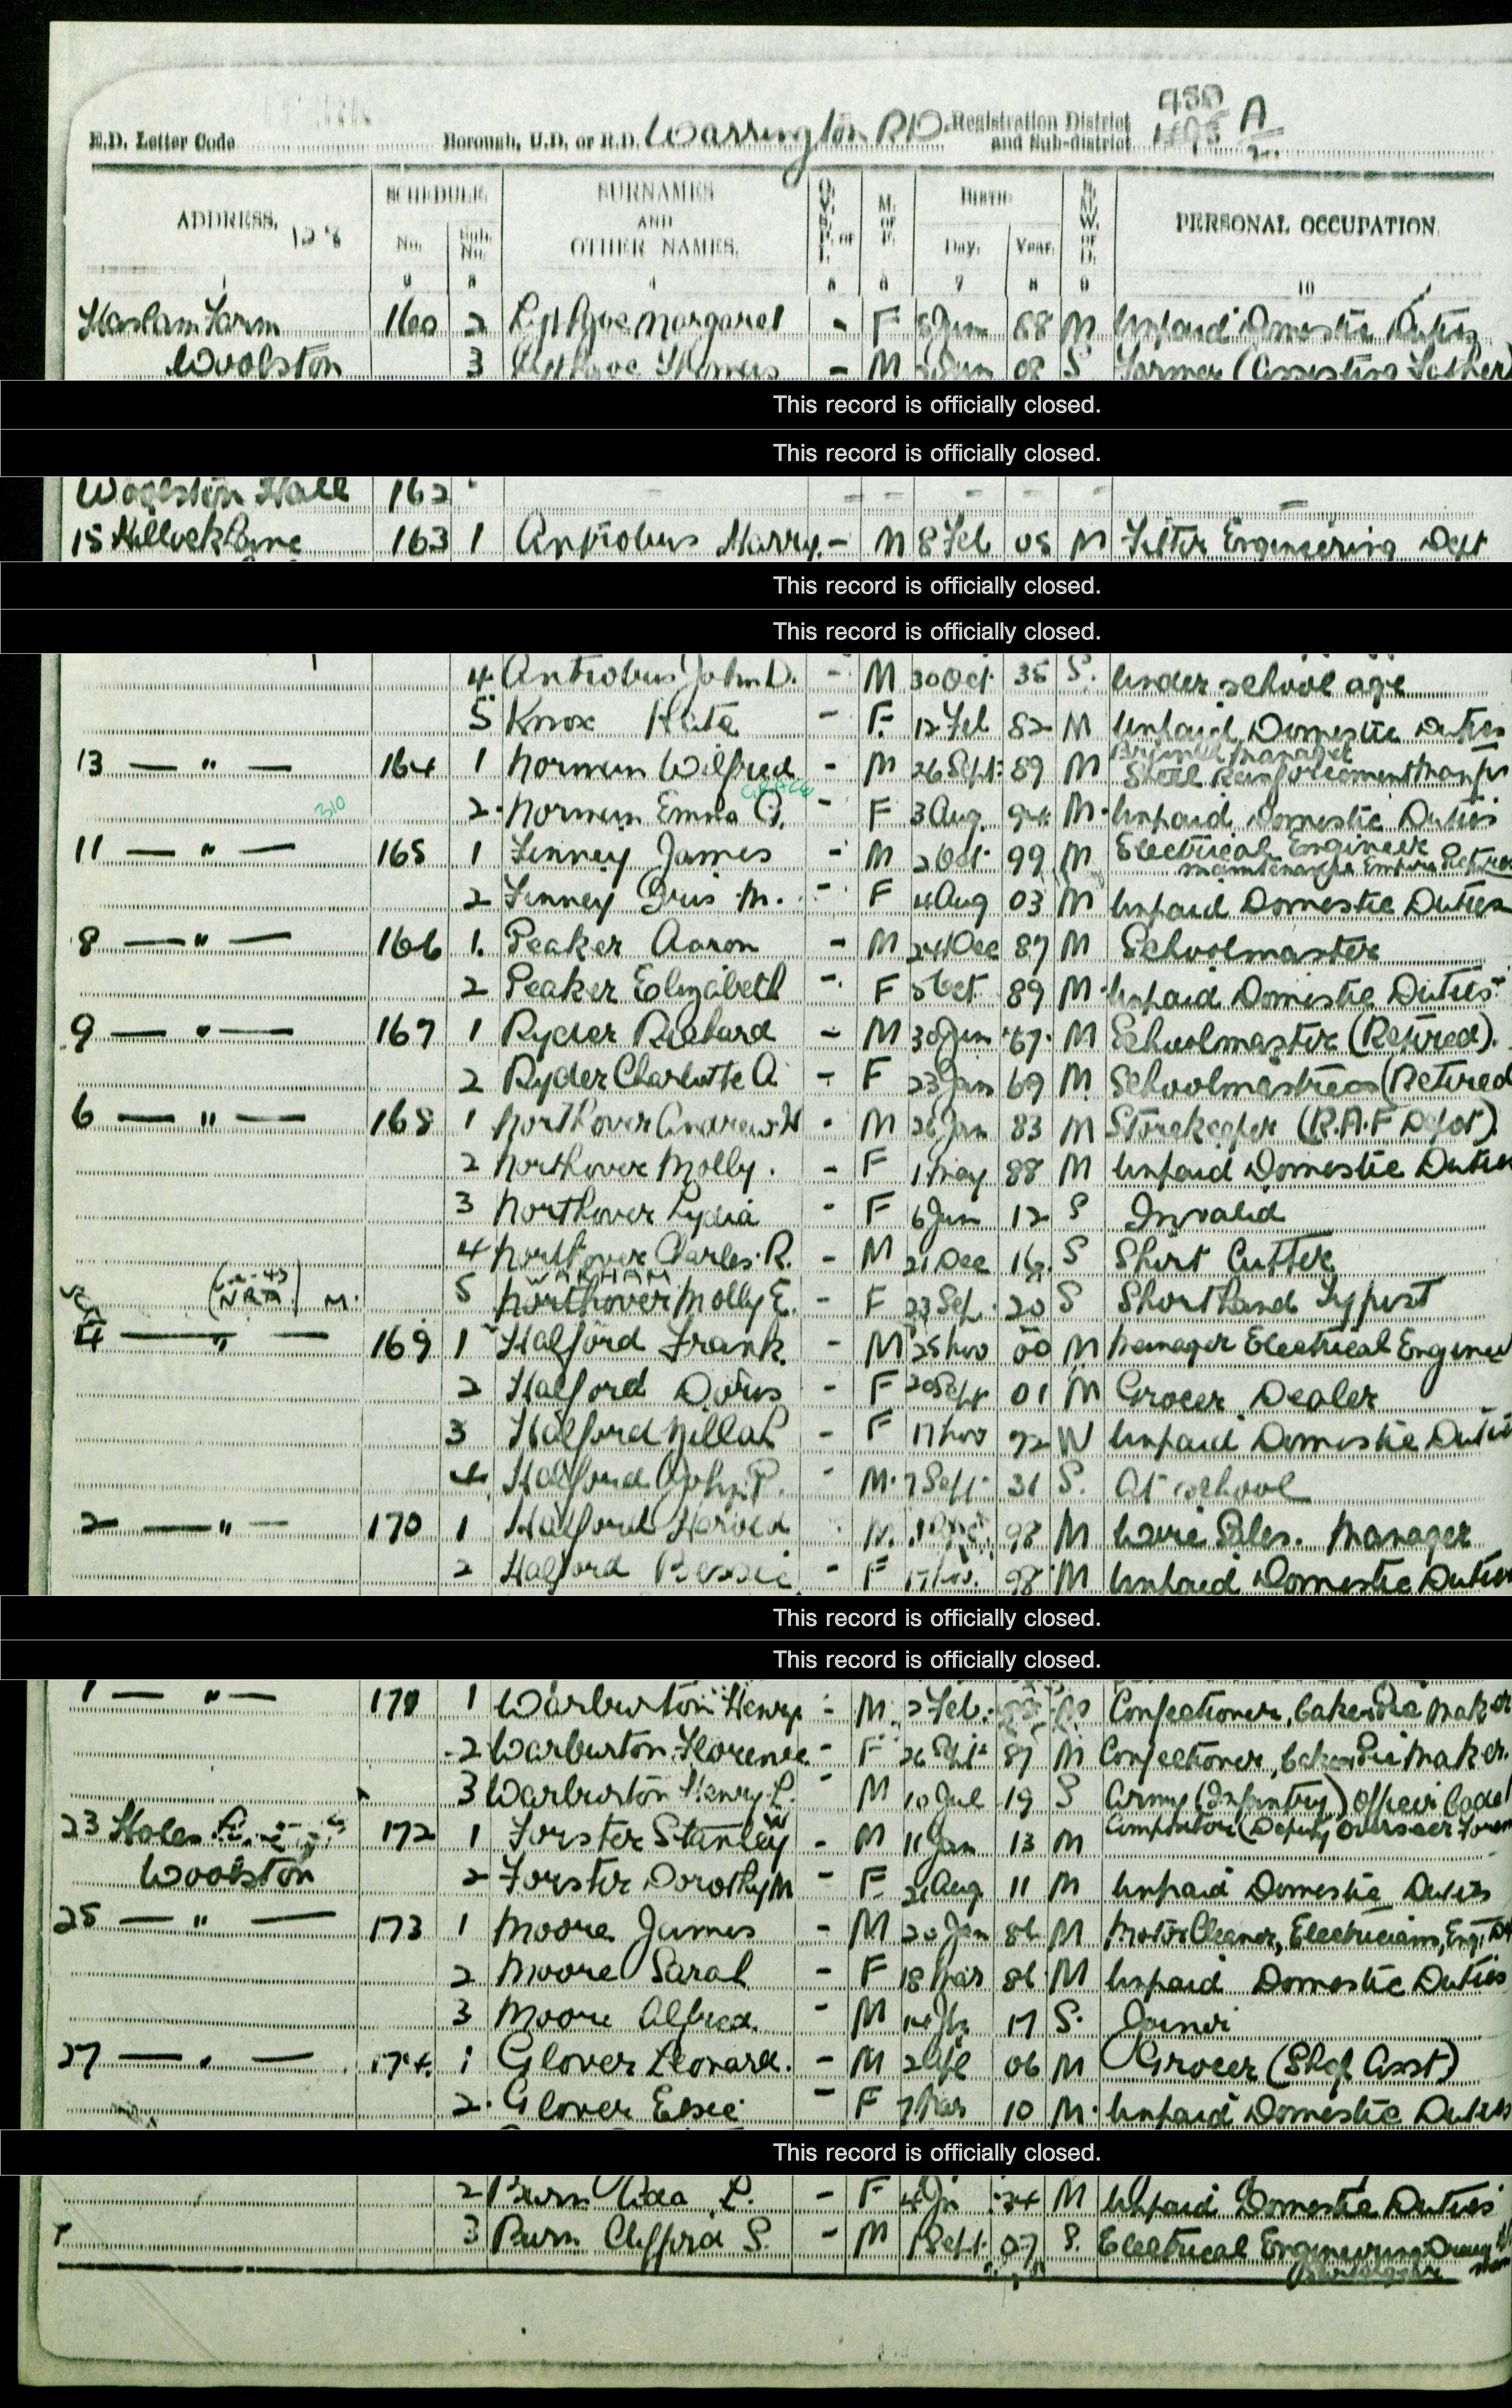 E.D. Letter Code Borough, U.D. or R.D. Warrington R.D. Registration District and Sub-district 450 A
ADDRESS. SCHEDULE. No. Sub. No. SURNAMES AND OTHER NAMES. M. or F. BIRTH Day. Year. PERSONAL OCCUPATION.
160 2 Margaret - F 88 M Unpaid Domestic Duties
Woolston 3 Thomas - M 08 S Farmer (Assisting Father)
This record is officially closed.
This record is officially closed.
Woolston Hall 162
15 Hillock Lane 163 1 Antrobus Harry - M 8 Feb 05 M Fitter Engineering Dept
This record is officially closed.
This record is officially closed.
4 Antrobus John D. - M 30 Oct 35 S. Under school age
5 Knox - F. 12 Feb 82 M Unpaid Domestic Duties
13 — " — 164 1 Norman Wilfred - M 26 Sept 89 M Manager Steel Reinforcement
310 2 Norman Emma G. GRACE - F 3 Aug 94 M Unpaid Domestic Duties
11 — " — 165 1 Finney James - M 2 Oct 99 M Electrical Engineer Maintenance Empire
2 Finney M. - F 4 Aug 03 M Unpaid Domestic Duties
8 — " — 166 1. Peaker Aaron - M 24 Dec 87 M Schoolmaster
2 Peaker Elizabeth - F 5 Oct 89 M Unpaid Domestic Duties
9 — " — 167 1 Ryder Richard - M 30 67 M Schoolmaster (Retired).
2 Ryder Charlotte A. - F 23 Jan 69 M Schoolmistress (Retired
6 — " — 168 1 Northover Andrew H - M 26 Jan 83 M Storekeeper (R.A.F Depot).
2 Northover Molly. - F 1 May 88 M Unpaid Domestic Duties
3 Northover Lydia - F 6 Jun 12 S Invalid
4 Northover Charles R. - M 21 Dec 16 S Shirt Cutter
(NRA) M. 5 WARHAM Northover Molly E. - F 23 Sep 20 S Shorthand Typist
4 — " — 169 1 Halford Frank. - M 25 Nov 00 M Manager Electrical Engineer
2 Halford Doris - F 20 Sept 01 M Grocer Dealer
3 Halford - F 17 Nov 72 W Unpaid Domestic Duties
4 Halford John P. - M 7 Sept 31 S. At school
2 — " — 170 1 Halford Harold M. 98 M Wire Sales. Manager
2 Halford Bessie - F 17 Nov. 98 M Unpaid Domestic Duties
This record is officially closed.
This record is officially closed.
1 — " — 171 1 Warburton Henry - M 2 Feb. M Confectioner, Baker Pie Maker
2 Warburton Florence - F 26 Sept 87 M Confectioner, Baker Pie Maker.
3 Warburton Henry L. - M 10 Jul 19 S Army (Infantry) Officer Cadet
23 172 1 Forster Stanley W - M 11 Jan 13 M Compositor (Deputy Overseer
Woolston 2 Forster Dorothy M - F. 21 Aug 11 M Unpaid Domestic Duties
25 — " — 173 1 Moore James - M 20 Jan 86 M Motor Cleaner, Electricians, Eng.
2 Moore Sarah - F 18 Mar 86 M Unpaid Domestic Duties
3 Moore Alfred. - M 17 S. Joiner
27 — " — 174. 1 Glover Leonard. - M 06 M Grocer (Shop Asst)
2. Glover Elsie - F 7 Mar 10 M. Unpaid Domestic Duties
This record is officially closed.
2 Burn Ada L. - F 4 M Unpaid Domestic Duties
3 Burn Clifford S. - M 1 Sept. 07 S. Electrical Engineering